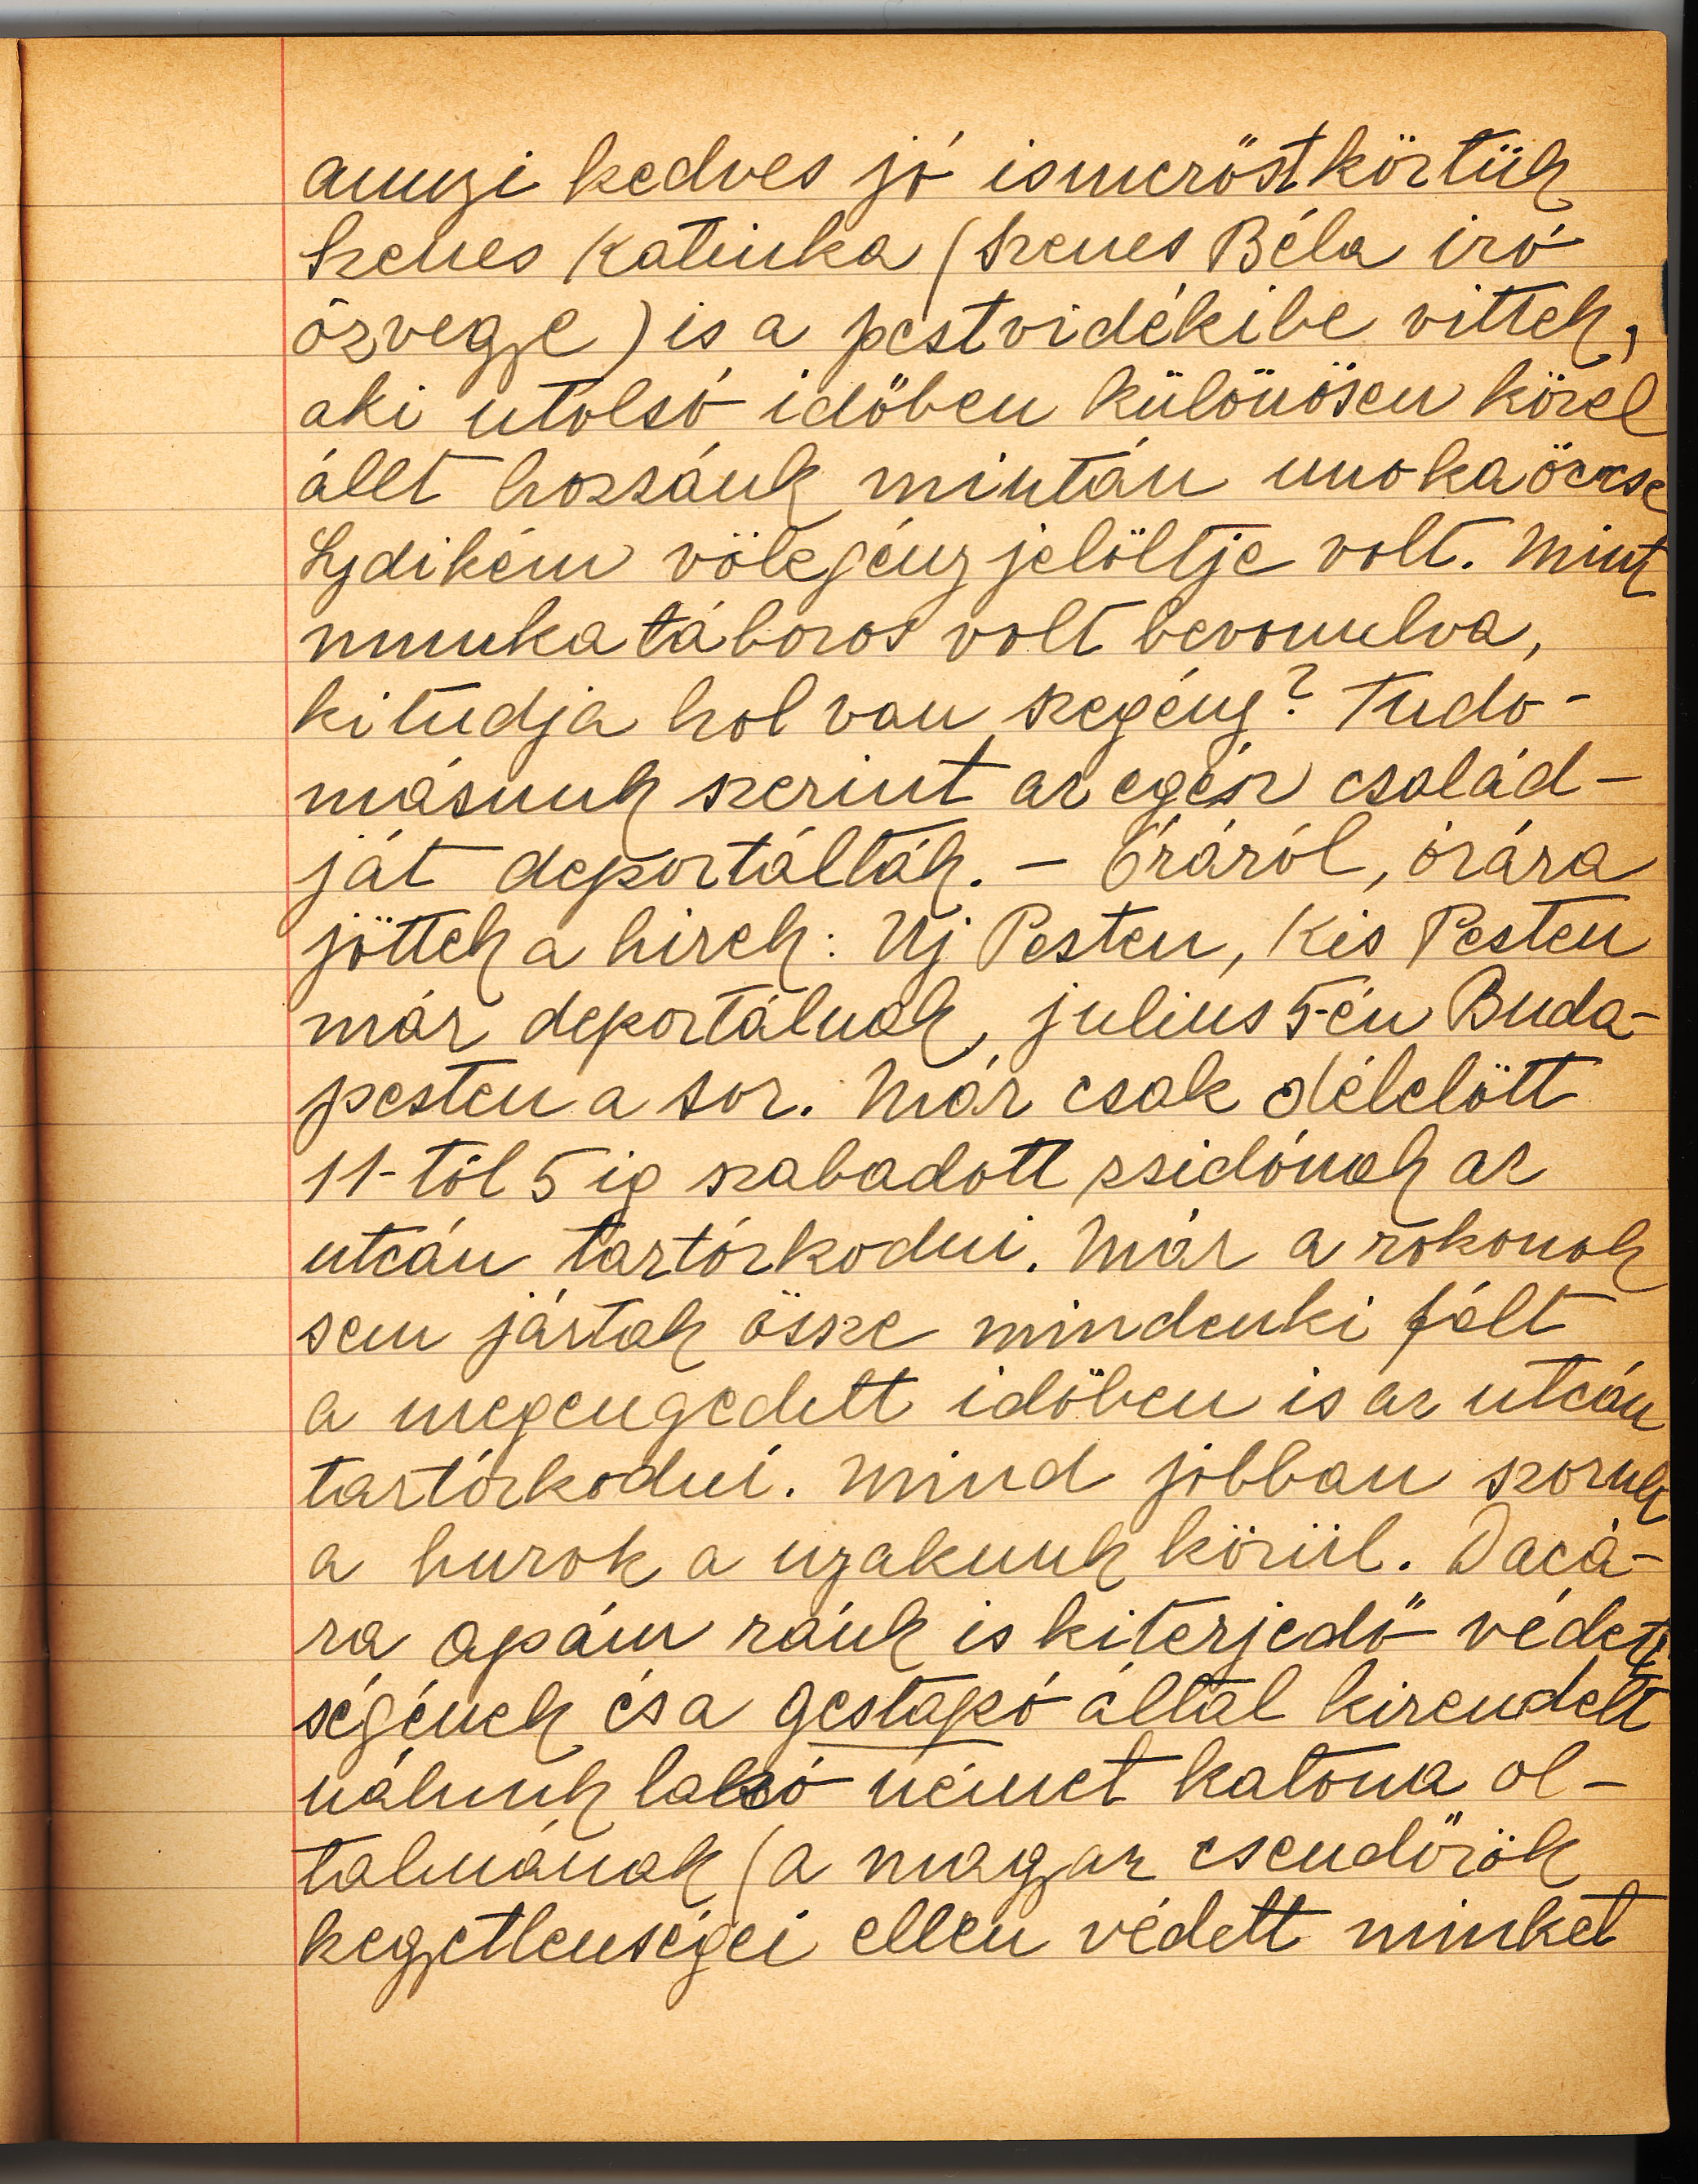 annyi kedves jó ismerőst köztük
Szenes Katinka (Szenes Béla iró
özvegye) is a pestvidékibe vittek,
aki utolsó időben különösen közel
állt hozzánk mintán unokaöccse
Lydikém völegény jelöltje volt. Mint
munkatáboros volt bevonulva,
ki tudja hol van szegény? Tudo-
másunk szerint az egész család-
ját deportálták. – Óráról, órára
jöttek a hirek: Uj Pesten, Kis Pesten
már deportálnak, julius 5-én Buda-
pesten a sor. Már csak délelött
11-töl 5 ig szabadott zsidónak az
utcán tartózkodni. Már a rokonok
sem jártak össze mindenki félt
a megengedett idöben is az utcán
tartózkodni. Mind jobban szorult
a hurok a nyakunk körül. Dacá-
ra apám ránk is kiterjedő védett
ségének és a gestapó által kirendelt
nálunk lakó német katona ol-
talmának (a magyar csendőrök
kegyetlenségei ellen védett minket